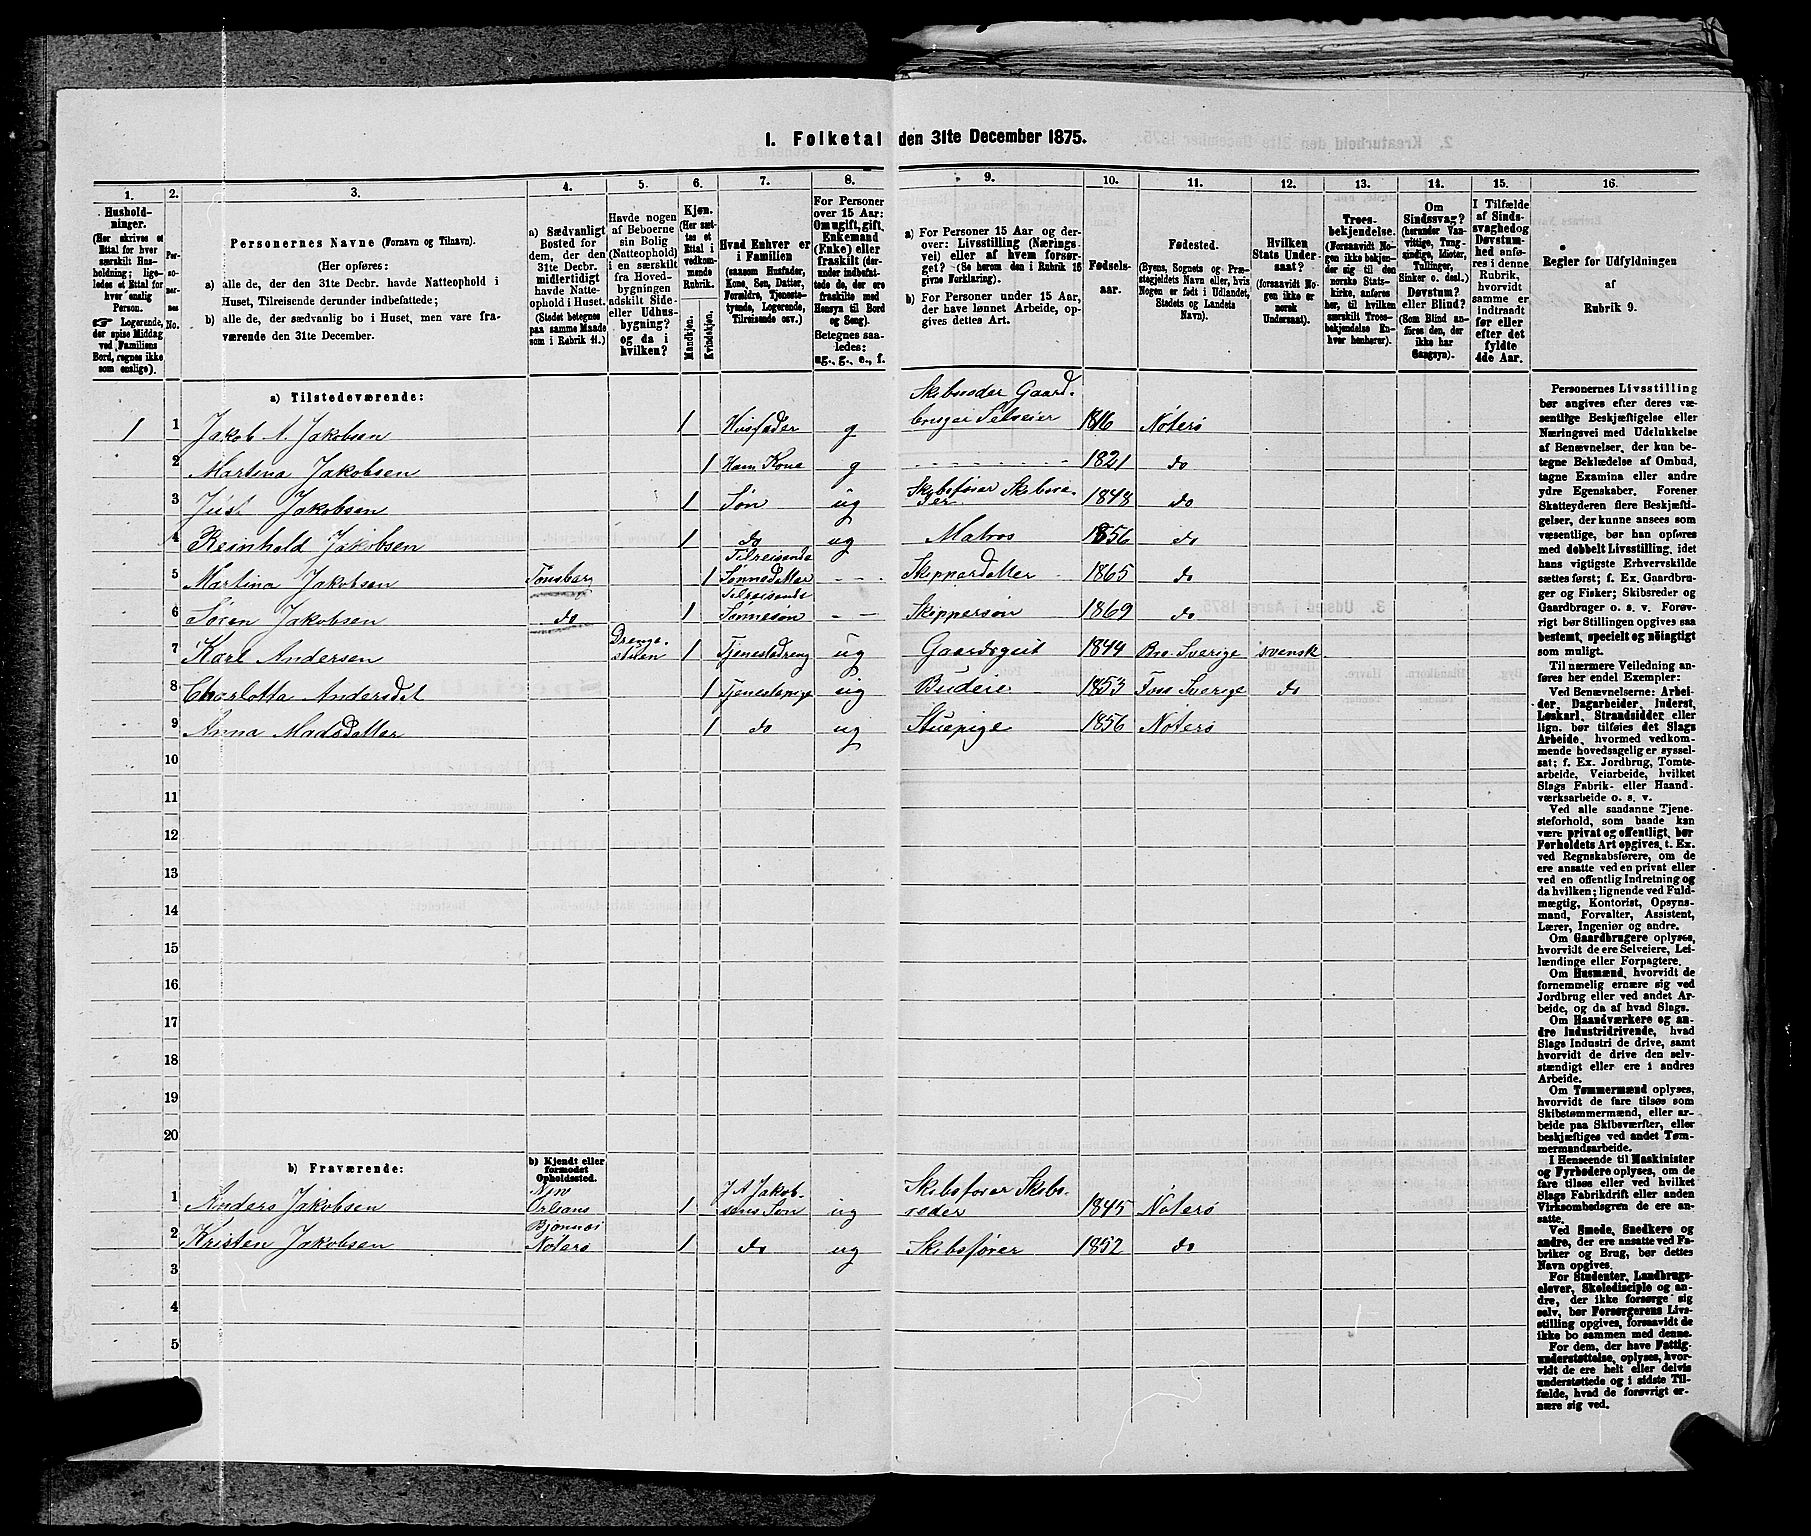 1. Folketal den 31te December 1875.
1. 2. 3. 4. 5. 6. 7. 8. 9. 10. 11. 12. 13. 14. 15. 16.
Hushold-
ninger.
(Her skrives et
Ettal for hver
særskilt Hus-
holdning; lige-
ledes et Ettal for
hver enslig
Person.
☞ Logerende,
der spise Middag
ved Familiens
Bord, regnes ikke
som enslige).
Per-
so-
ner-
nes
No.
Personernes Navne (Fornavn og Tilnavn).
(Her opføres:
a) alle de, der den 31te Decbr. havde Natteophold i
Huset, Tilreisende derunder indbefattede;
b) alle de, der sædvanlig bo i Huset, men vare fra-
værende den 31te December.
a) Sædvanligt
Bosted for
dem, der den
31te Decbr.
midlertidigt
havde Natte-
ophold i Huset.
(Stedet betegnes
paa samme Maade
som i Rubrik 11.)
Havde nogen
af Beboerne
sin Bolig
(Natteophold)
i en særskilt
fra Hoved-
bygningen
adskilt Side-
eller Udhus-
bygning?
og da i
hvilken?
Kjøn.
(Her sæt-
tes et
Ettal i
vedkom-
mende
Rubrik.
Mandkjøn.
Kvindekjøn.
Hvad Enhver er
i Familien
(saasom Husfader,
Kone, Søn, Datter,
Forældre, Tjeneste-
tyende, Logerende,
Tilreisende osv.)
For Personer
over 15 Aar:
Om ugift, gift,
Enkemand
(Enke) eller
fraskilt (der-
under indbefat-
tede de, der ere
fraskilte med
Hensyn til Bord
og Seng).
Betegnes saa-
ledes:
ug., g., e., f.
a) For Personer 15 Aar og der-
over: Livsstilling (Nærings-
vei) eller af hvem forsør-
get? (Se herom den i Rubrik 16
givne Forklaring).
b) For Personer under 15 Aar,
der have lønnet Arbeide, op-
gives dettes Art.
Fødsels-
aar.
Fødested.
(Byens, Sognets og Præ-
stegjeldets Navn eller, hvis
Nogen er født i Udlandet,
Stedets og Landets
Navn).
Hvilken
Stats Under-
saat?
(forsaavidt No-
gen ikke er
norsk
Undersaat).
Troes-
bekjendelse.
(Forsaavidt No-
gen ikke bekjen-
der sig til den
norske Stats-
kirke, anføres
her, til hvilken
særskilt Troes-
bekjendelse En-
hver henhører).
Om
Sindssvag?
(herunder Van-
vittige, Tung-
sindige, Idioter,
Tullinger,
Sinker o. desl.)
Døvstum?
eller Blind?
(Som Blind an-
føres den, der
ikke har
Gangsyn).
I Tilfælde
af Sinds-
svaghed og
Døvstum-
hed anfø-
res i denne
Rubrik,
hvorvidt
samme er
indtraadt
før eller
efter det
fyldte
4de Aar.
Regler for Udfyldningen
af
Rubrik 9.
a) Tilstedeværende:
1 1 Jakob A. Jakobsen 1 Husfader g Skibsreder Gaard-
bruger Selveier 1816 Nøterø
2 Martina Jakobsen 1 Hans Kone g 1821 do
3 Just Jakobsen 1 Søn ug Skibsfører Skibsre-
der 1848 do
4 Reinhold Jakobsen 1 do ug Matros 1856 do
5 Martina Jakobsen Tønsberg 1 Tilreisende
Sønnedatter - - Skipperdatter 1865 do
6 Søren Jakobsen do 1 Tilreisende
Sønnesøn - - Skippersøn 1869 do
7 Karl Andersen Drenge
stuen 1 Tjenestedreng ug Gaardsgut 1844 Bro Sverige svensk
8 Charlotta Andersdat 1 Tjenestepige ug Budeie 1853 Foss Sverige do
9 Anna Madsdatter 1 do ug Stuepige 1856 Nøterø
10
11
12
13
14
15
16
17
18
19
20
b) Fraværende:
b) Kjendt eller
formodet
Opholdssted.
1 Anders Jakobsen New
Orleans 1 J A Jakob-
sens Søn ug Skibsfører Skibs-
reder 1845 Nøterø
2 Kristen Jakobsen Nøterø 1 do ug Skibsfører 1852 do
3
4
5
Personernes Livsstilling
bør angives efter deres væ-
sentlige Beskjæftigelse eller
Næringsvei med Udelukkelse
af Benævnelser, der kun be-
tegne Beklædelse af Ombud,
tagne Examina eller andre
ydre Egenskaber. Forener
Skatteyderen flere Beskjæfti-
gelser, der kunne ansees som
væsentlige, bør han opføres
med dobbelt Livsstilling, idet
hans vigtigste Erhvervskilde
sættes først; f. Ex. Gaardbru-
ger og Fisker; Skibsreder og
Gaardbruger o. s. v. Forøv-
rigt bør Stillingen opgives saa
bestemt, specielt og nöiagtigt
som muligt.
Til nærmere Veiledning an-
føres her endel Exempler:
Ved Benævnelserne: Arbei-
der, Dagarbeider, Inderst,
Løskarl, Strandsidder eller
lign. bør tilføies det Slags
Arbeide, hvormed vedkom-
mende hovedsagelig er syssel-
sat; f. Ex. Jordbrug, Tomte-
arbeide, Veiarbeide, hvilket
Slags Fabrik- eller Haand-
værksarbeide o. s. v.
Ved alle saadanne Tjene-
steforhold, som baade kan
være privat og offentligt, bør
Forholdets Art opgives, t. Ex.
ved Regnskabsførere, om de
ere ansatte ved en privat eller
ved en offentlig Indretning og
da hvilken; lignende ved Fuld-
mægtig, Kontorist, Opsyns-
mand, Forvalter, Assistent,
Lærer, Ingeniør og andre.
Om Gaardbrugere oplyses,
hvorvidt de ere Selveiere, Lei-
lændinge eller Forpagtere.
Om Husmænd, hvorvidt de
fornemmelig ernære sig ved
Jordbrug eller ved andet Ar-
beide, og da af hvad Slags.
Om Haandværkere og an-
dre Industridrivende, hvad
Slags Industri de drive, samt
hvorvidt de drive den selv-
stændigt eller ere i andres
Arbeide.
Om Tømmermænd oplyses,
hvorvidt de fare tilsøs som
Skibstømmermænd, eller ar-
beide paa Skibsværfter, eller
beskjæftiges ved andet Tøm-
mermandsarbeide.
I Henseende til Maskinister
og Fyrbødere oplyses, om de
fare tilsøs eller ved hvilket
Slags Fabrikdrift eller anden
Virksomhedsgren de ere an-
satte.
Ved Smede, Snedkere og
andre, der ere ansatte ved Fa-
briker og Brug, bør dettes
Navn opgives.
For Studenter, Landbrugs-
elever, Skoledisciple og an-
dre, der ikke forsørge sig
selv, bør Forsørgerens Livs-
stilling opgives, forsaavidt de
ikke bo sammen med denne.
For dem, der have Fattig-
understøttelse, oplyses, hvor-
vidt de ere helt eller delvis
understøttede og i sidste Til-
fælde, hvad de forøvrigt er-
nære sig ved.